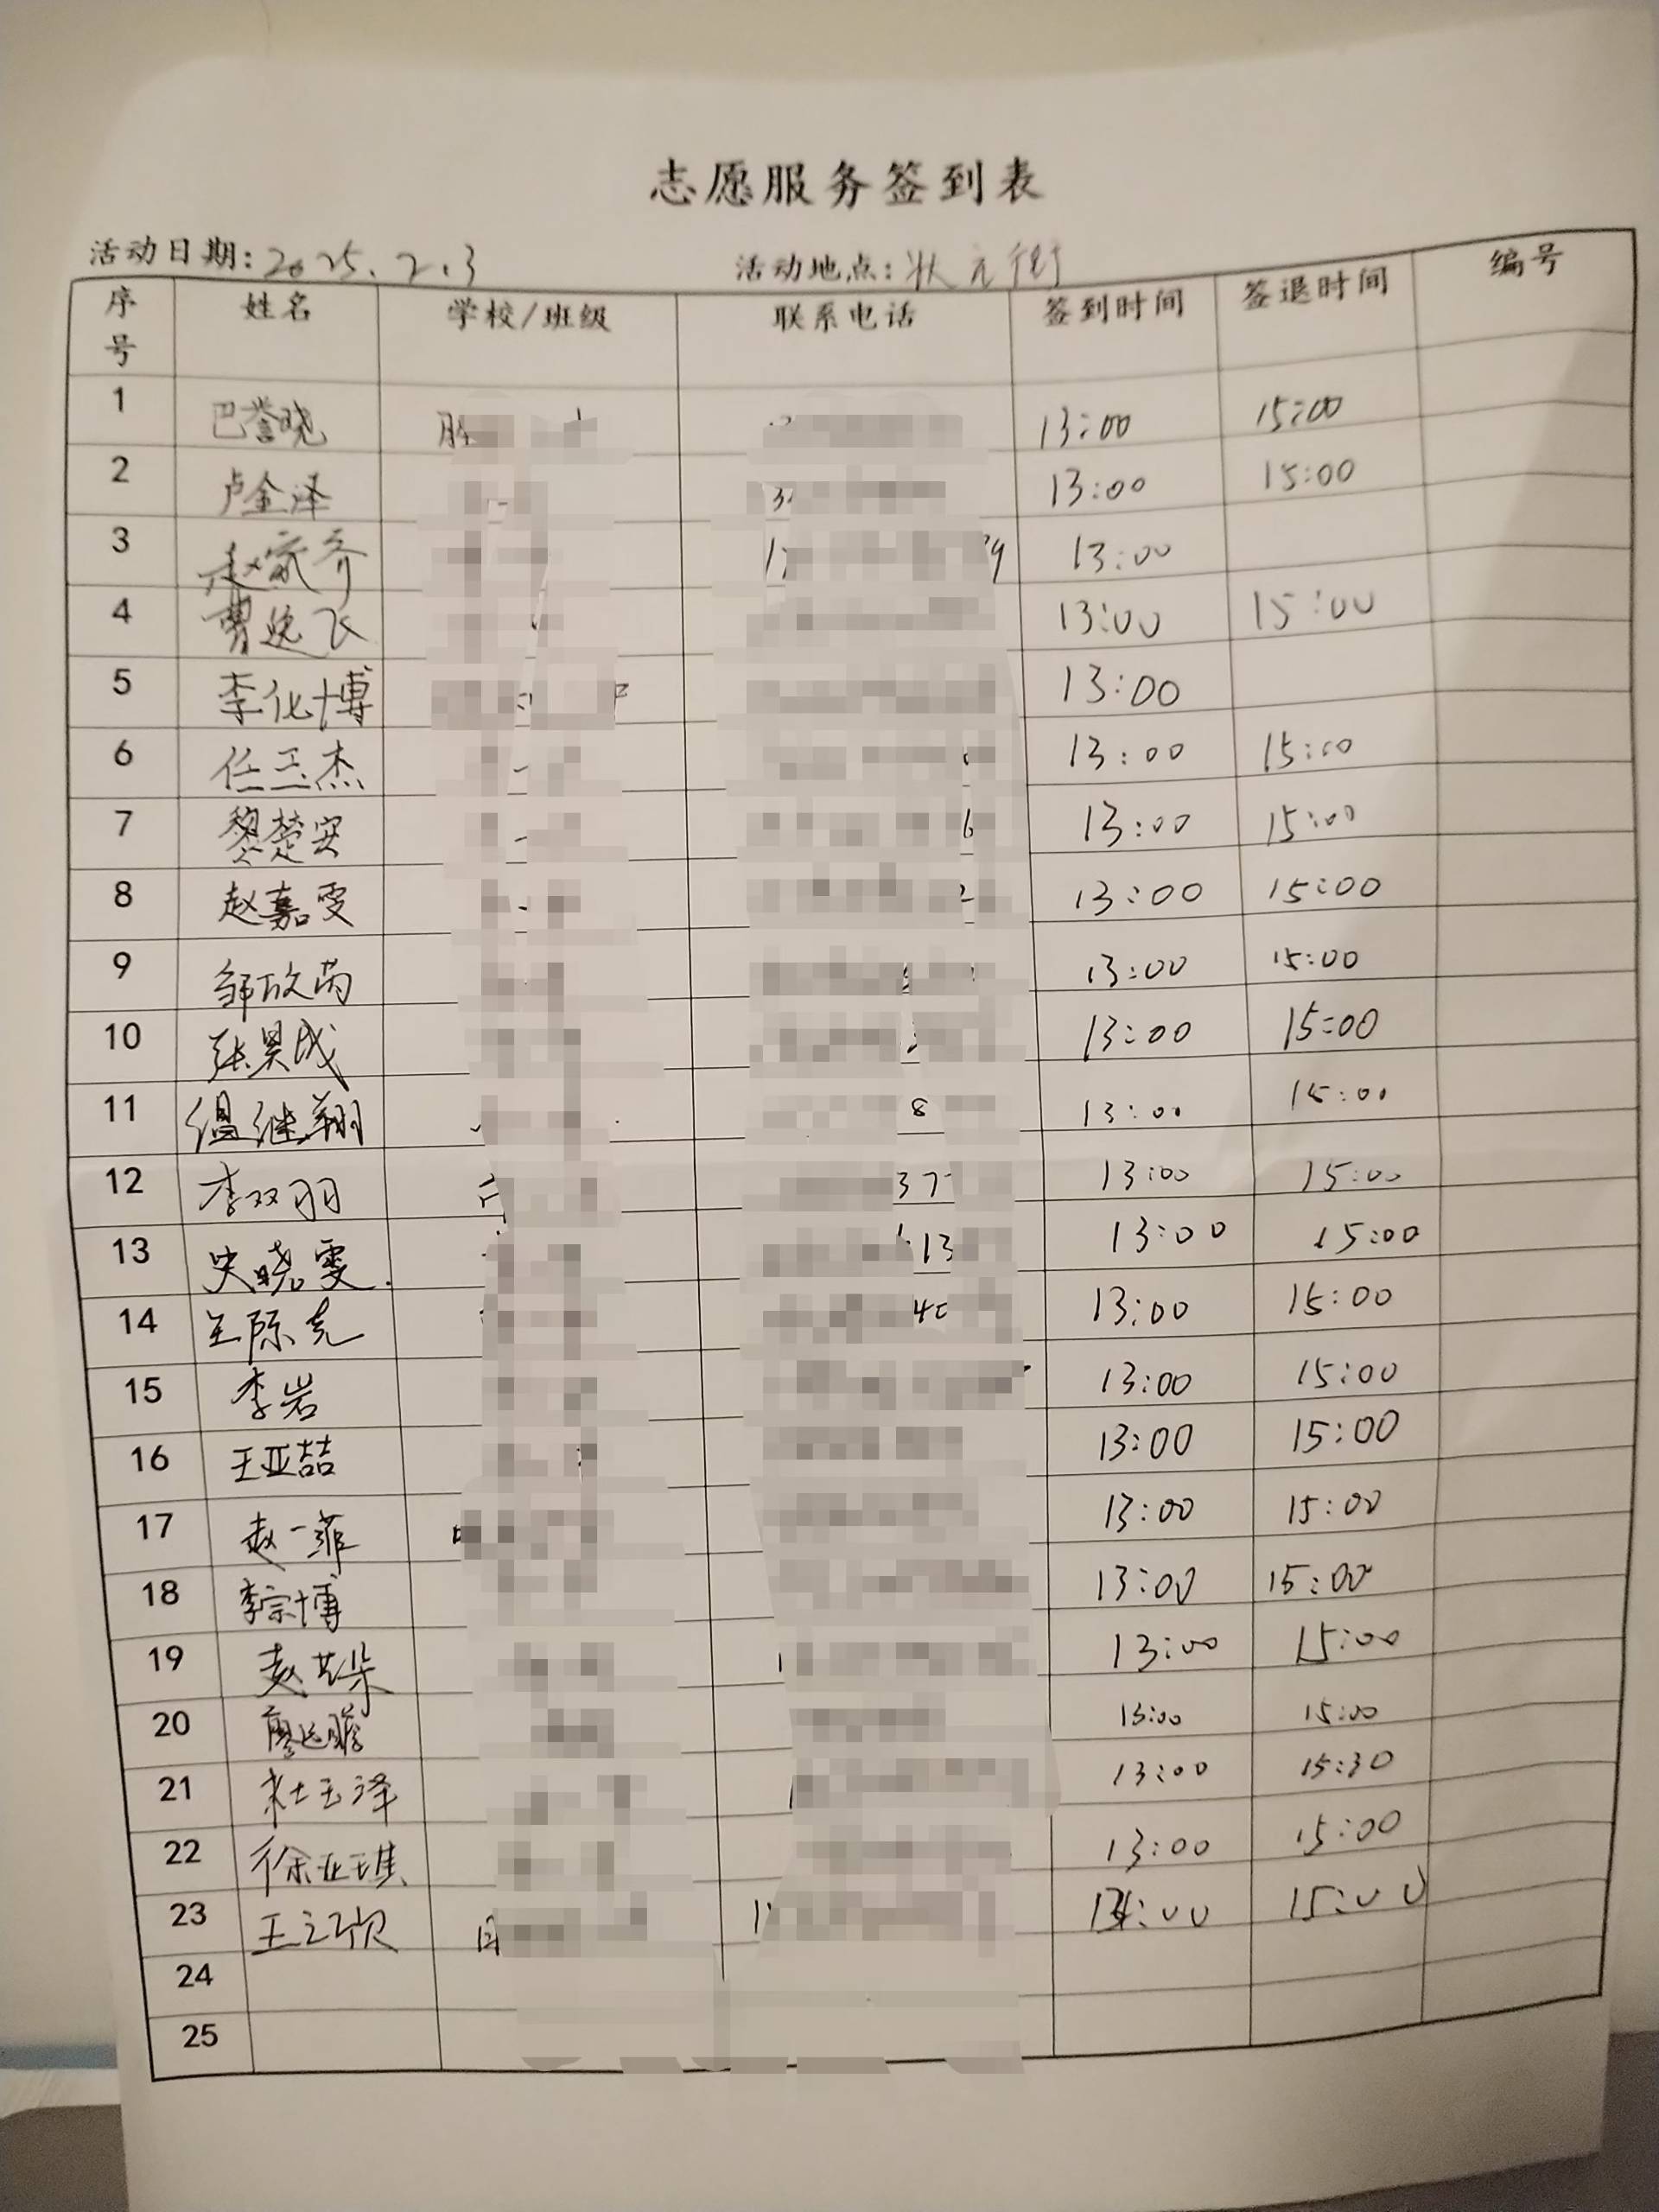 志愿服务签到表
活动日期:2025.2.3 活动地点:状元街
序号 姓名 学校/班级 联系电话 签到时间 签退时间 编号
1 巴誉晓 13:00 15:00
2 卢金泽 13:00 15:00
3 赵家齐 13:00
4 曹逸飞 13:00 15:00
5 李化博 13:00
6 任玉杰 13:00 15:00
7 黎楚安 13:00 15:00
8 赵嘉雯 13:00 15:00
9 邹欣芮 13:00 15:00
10 张昊成 13:00 15:00
11 温继翔 8 13:00 15:00
12 李双羽 37 13:00 15:00
13 史晓雯. 13 13:00 15:00
14 13:00 15:00
15 李岩 13:00 15:00
16 王亚喆 13:00 15:00
17 赵一菲 13:00 15:00
18 李宗博 13:00 15:00
19 13:00 15:00
20 13:00 15:00
21 杜玉泽 13:00 15:30
22 徐亚琪 13:00 15:00
23 15:00
24
25